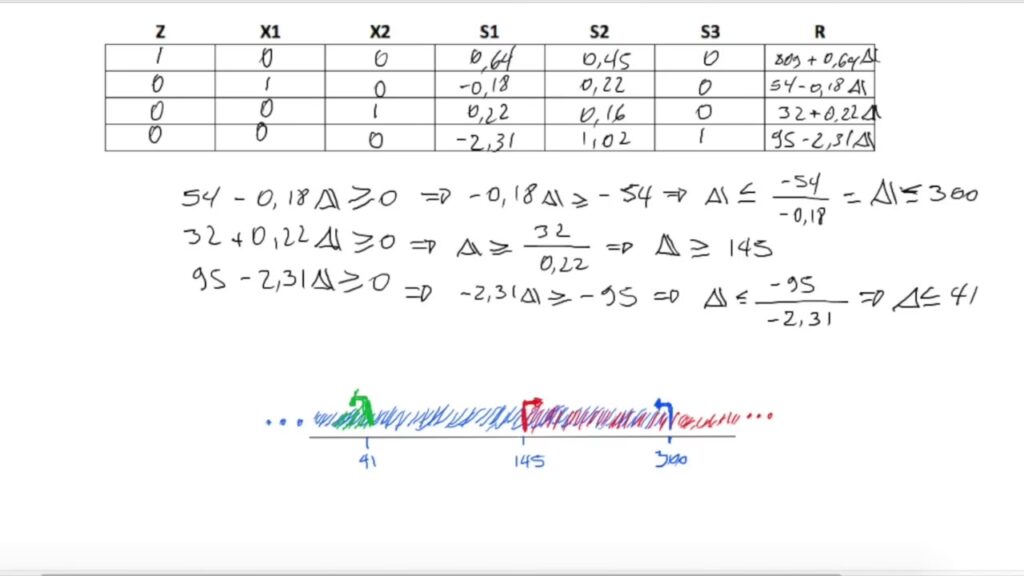 Z X1 X2 S1 S2 S3 R
1 0 0 0,64 0,45 0 809 + 0,64Δ1
0 1 0 -0,18 0,22 0 54-0,18Δ1
0 0 1 0,22 0,16 0 32+0,22Δ1
0 0 0 -2,31 1,02 1 95-2,31Δ1
54 - 0,18Δ1 ≥ 0 ⇒ -0,18Δ1 ≥ -54 ⇒ Δ1 ≤ -54/-0,18 = Δ1 ≤ 300
32 + 0,22Δ1 ≥ 0 ⇒ Δ1 ≥ 32/0,22 ⇒ Δ ≥ 145
95 - 2,31Δ1 ≥ 0 ⇒ -2,31Δ1 ≥ -95 ⇒ Δ1 ≤ -95/-2,31 ⇒ Δ ≤ 41
41 145 300